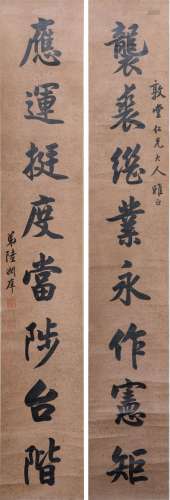 襲裘继業永作憲矩
敦堂仁兄大人雅正
應運挺度當陟台階
弟陸潤庠